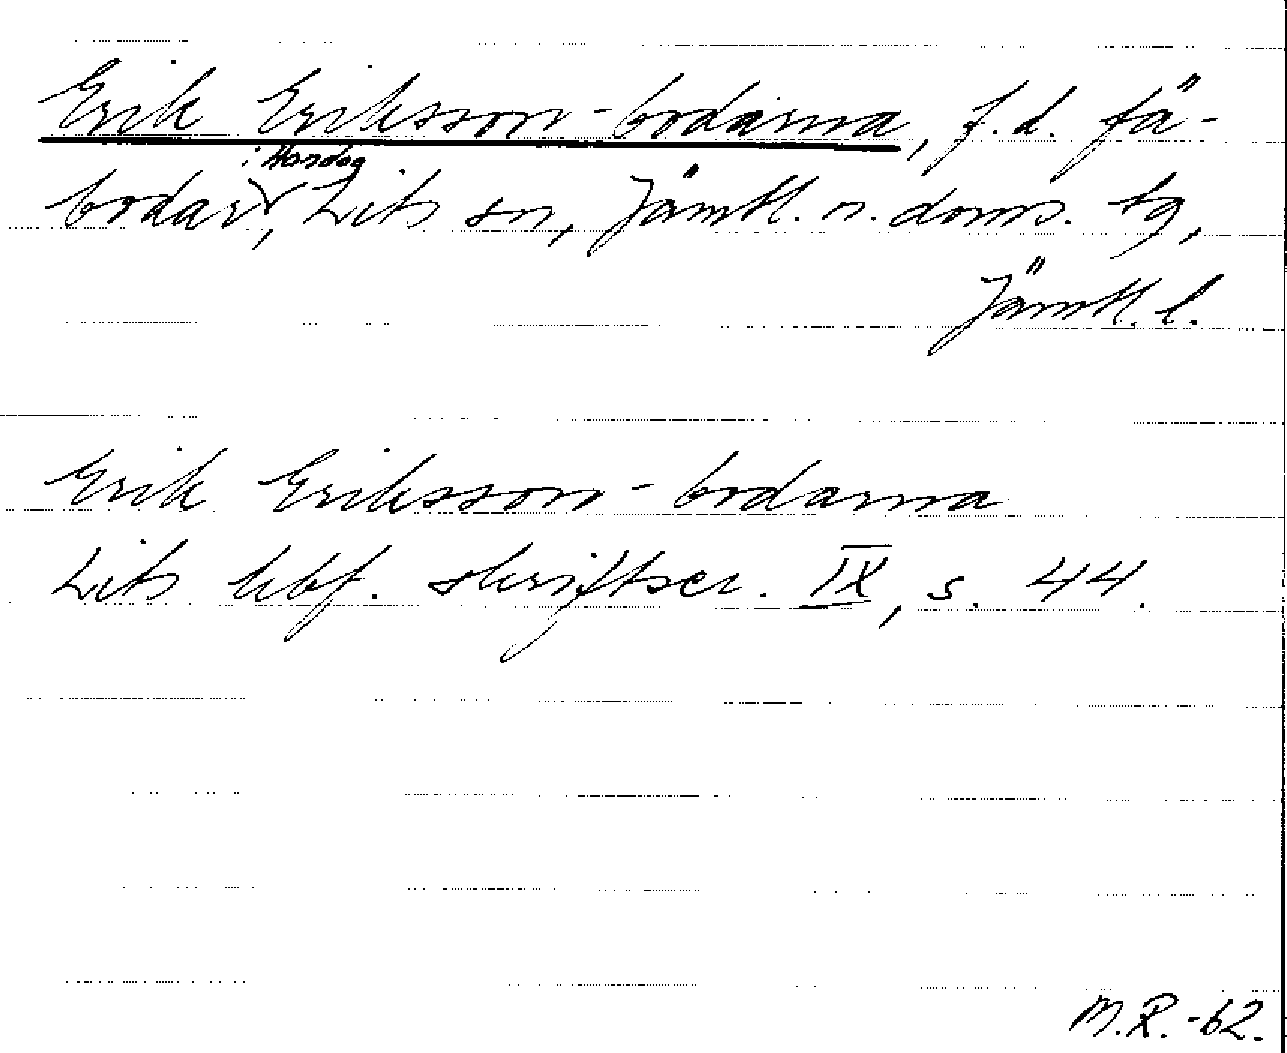 Erik Eriksson-bodarna, f.d. fä-
i Handog
bodar, Lits sn, Jämtl. n. doms. tg,
Jämtl. l.
Erik Eriksson-bodarna
Lits hbf. skriftser. IX, s. 44.
M.R.-62.